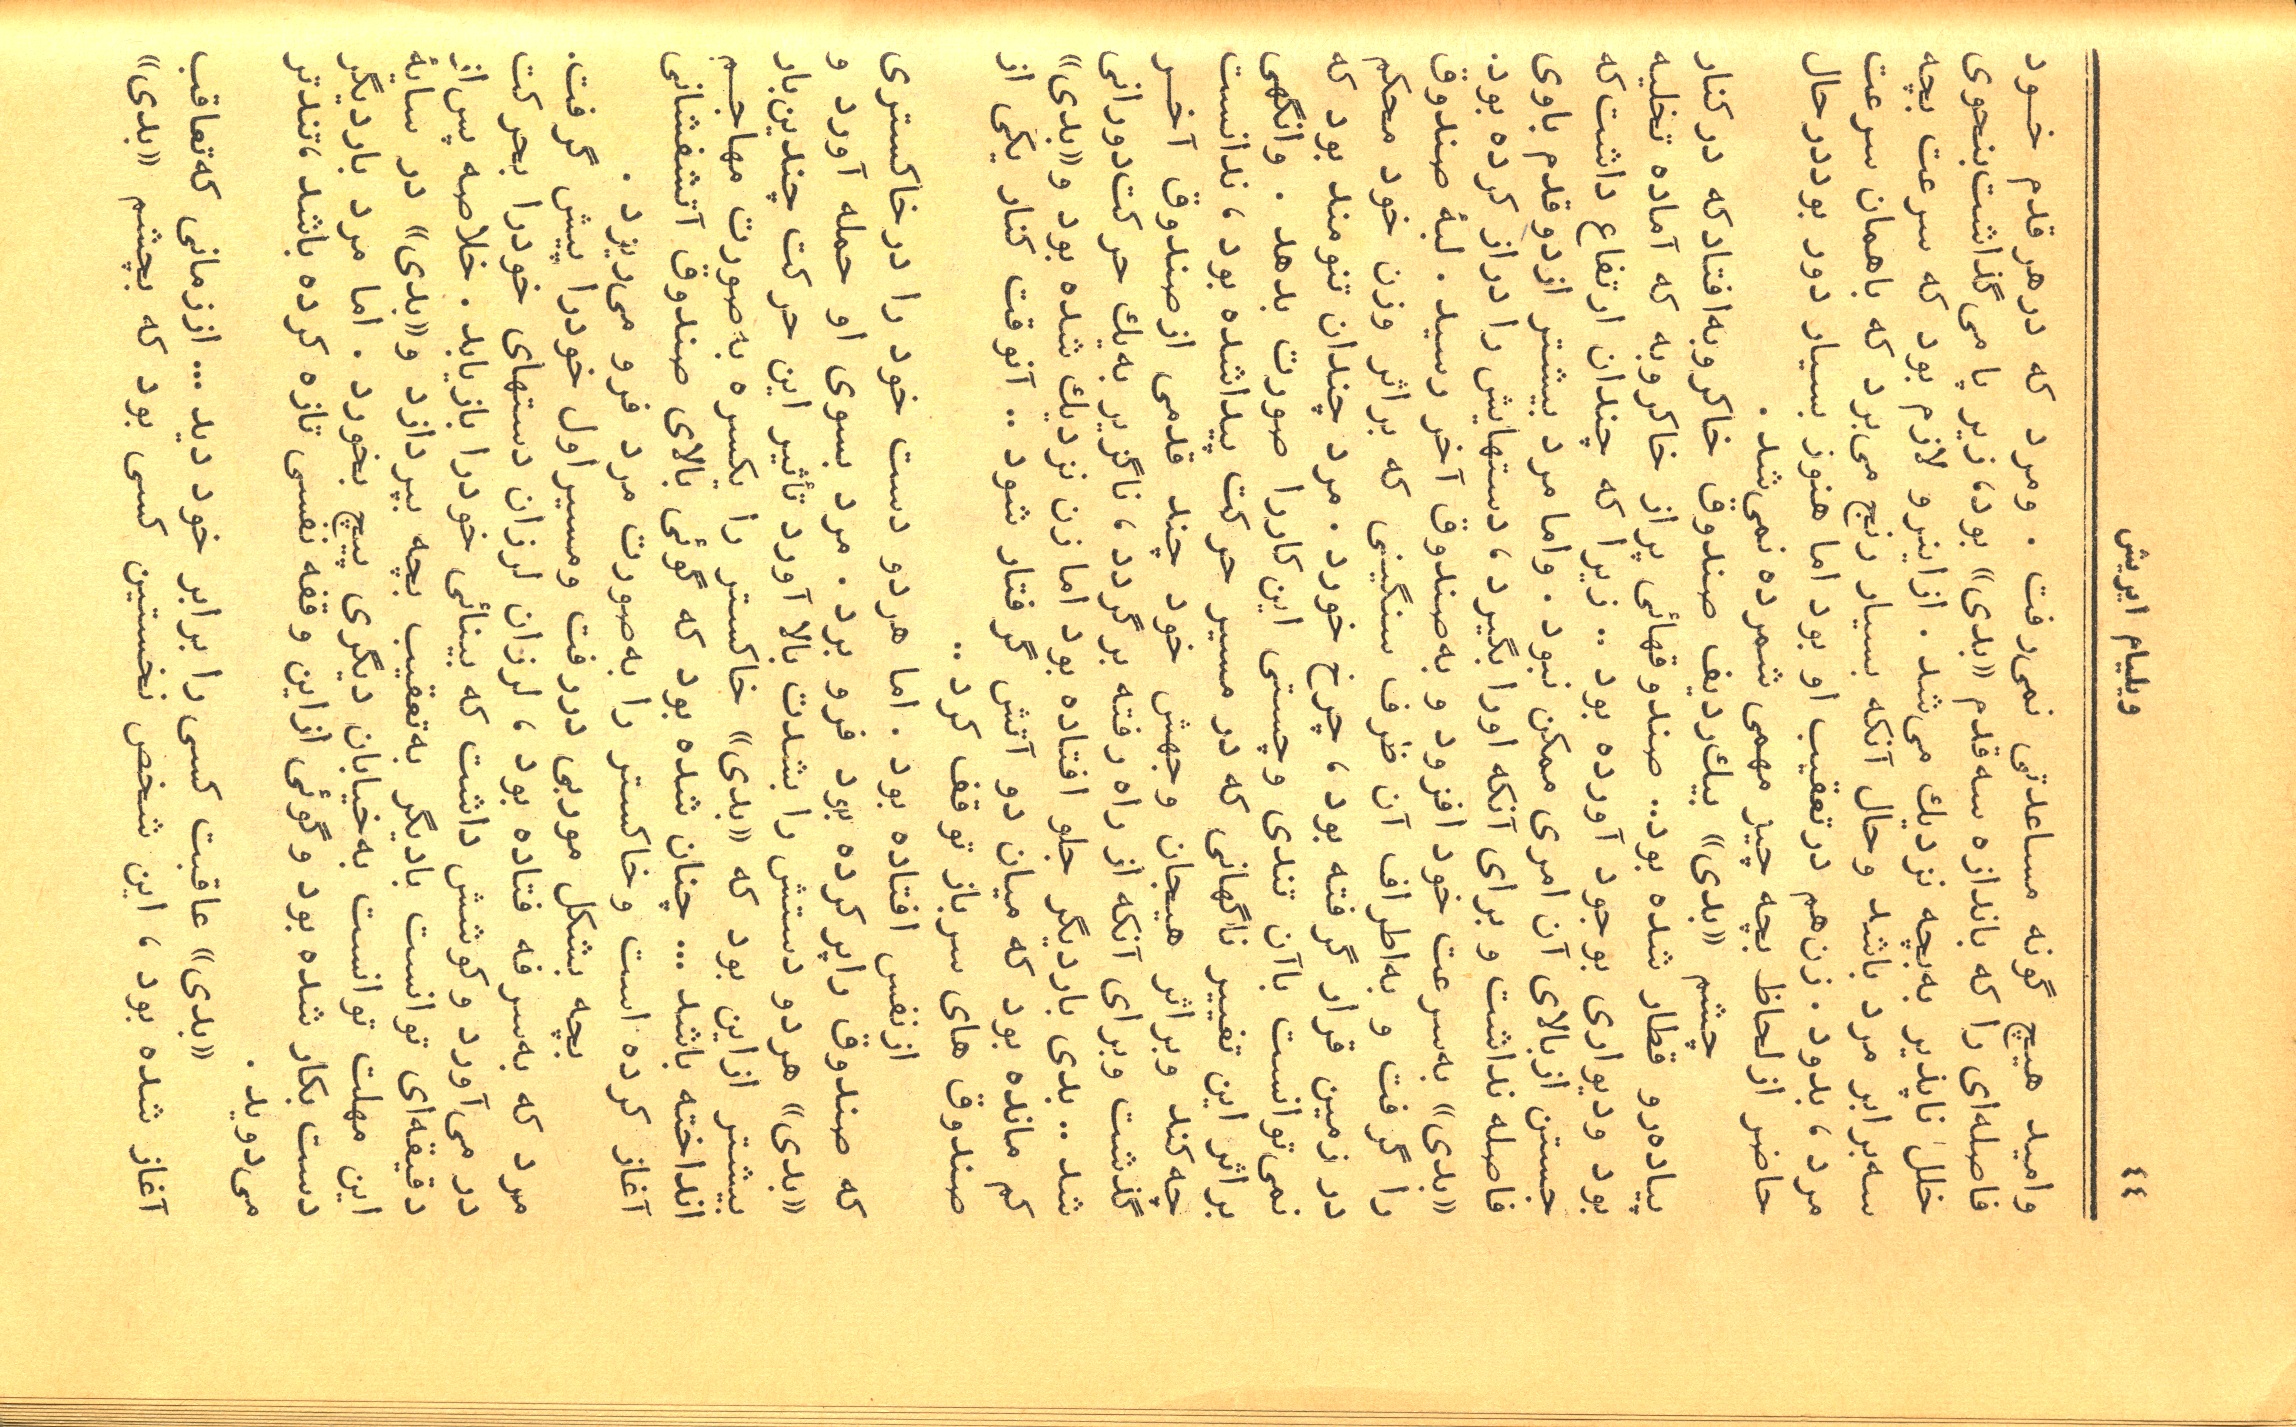 ٤٤
ویلیام ایریش
وامید هیچ گونه مساعدتی نمی‌رفت . ومرد که درهرقدم خود
فاصله‌ای را که باندازه سه‌قدم «بدی» بود، زیر پا می گذاشت‌بنحوی
خلل ناپذیر به‌بچه نزدیك می‌شد . ازاینرو لازم بود که سرعت بچه
سه‌برابر مرد باشد وحال آنکه بسیار رنج می‌برد که باهمان سرعت
مرد ، بدود . زن‌هم درتعقیب او بود اما هنوز بسیار دور بوددرحال
حاضر ازلحاظ بچه چیز مهمی شمرده نمی‌شد .
چشم «بدی» بیك‌ردیف صندوق خاکروبه‌افتادکه درکنار
پیاده‌رو قطار شده بود.. صندوقهائی پراز خاکروبه که آماده تخلیه
بود ودیواری بوجود آورده بود .. زیرا که چندان ارتفاع داشت‌که
جستن ازبالای آن امری ممکن نبود . واما مرد بیشتر ازدوقدم باوی
فاصله نداشت وبرای آنکه اورا بگیرد، دستهایش را دراز کرده بود.
«بدی» به‌سرعت خود افزود و به‌صندوق آخر رسید . لبهٔ صندوق
را گرفت و به‌اطراف آن ظرف سنگینی که براثر وزن خود محکم
در زمین قرار گرفته بود ، چرخ خورد . مرد چندان تنومند بود که
نمی‌توانست باآن تندی وچستی این کاررا صورت بدهد . وانگهی
براثر این تغییر ناگهانی که در مسیر حرکت پیداشده بود ، ندانست
چه‌کند وبراثر هیجان وجهش خود چند قدمی ازصندوق آخر
گذشت وبرای آنکه از راه رفته برگردد ، ناگزیر به‌یك حرکت‌دورانی
شد .. بدی باردیگر جلو افتاده بود اما زن نزدیك شده بود و«بدی»
کم مانده بود که میان دو آتش گرفتار شود .. آنوقت کنار یکی از
صندوق های سرباز توقف کرد ..
ازنفس افتاده بود . اما هردو دست خود را درخاکستری
که صندوق راپر کرده بود فرو برد . مرد بسوی او حمله آورد و
«بدی» هردو دستش را بشدت بالا آورد تأثیر این حرکت چندین‌بار
بیشتر ازاین بود که «بدی» خاکستر را یکسره به‌صورت مهاجم
انداخته باشد ... چنان شده بود که گوئی بالای صندوق آتشفشانی
آغاز کرده است وخاکستر را به‌صورت مرد فرو می‌ریزد .
بچه بشکل موربی دررفت ومسیراول خودرا پیش گرفت.
مرد که به‌سرفه فتاده بود ، لرزان لرزان دستهای خودرا بحرکت
در می‌آورد وکوشش داشت که بینائی خودرا بازیابد . خلاصه پس‌از
دقیقه‌ای توانست باردیگر به‌تعقیب بچه بپردازد و«بدی» در سائه
این مهلت توانست به‌خیابان دیگری پیچ بخورد . اما مرد باردیگر
دست بکار شده بود و گوئی ازاین وقفه نفسی تازه کرده باشد، تندتر
می‌دوید .
«بدی» عاقبت کسی را برابر خود دید ... اززمانی که‌تعاقب
آغاز شده بود ، این شخص نخستین کسی بود که بچشم «بدی»